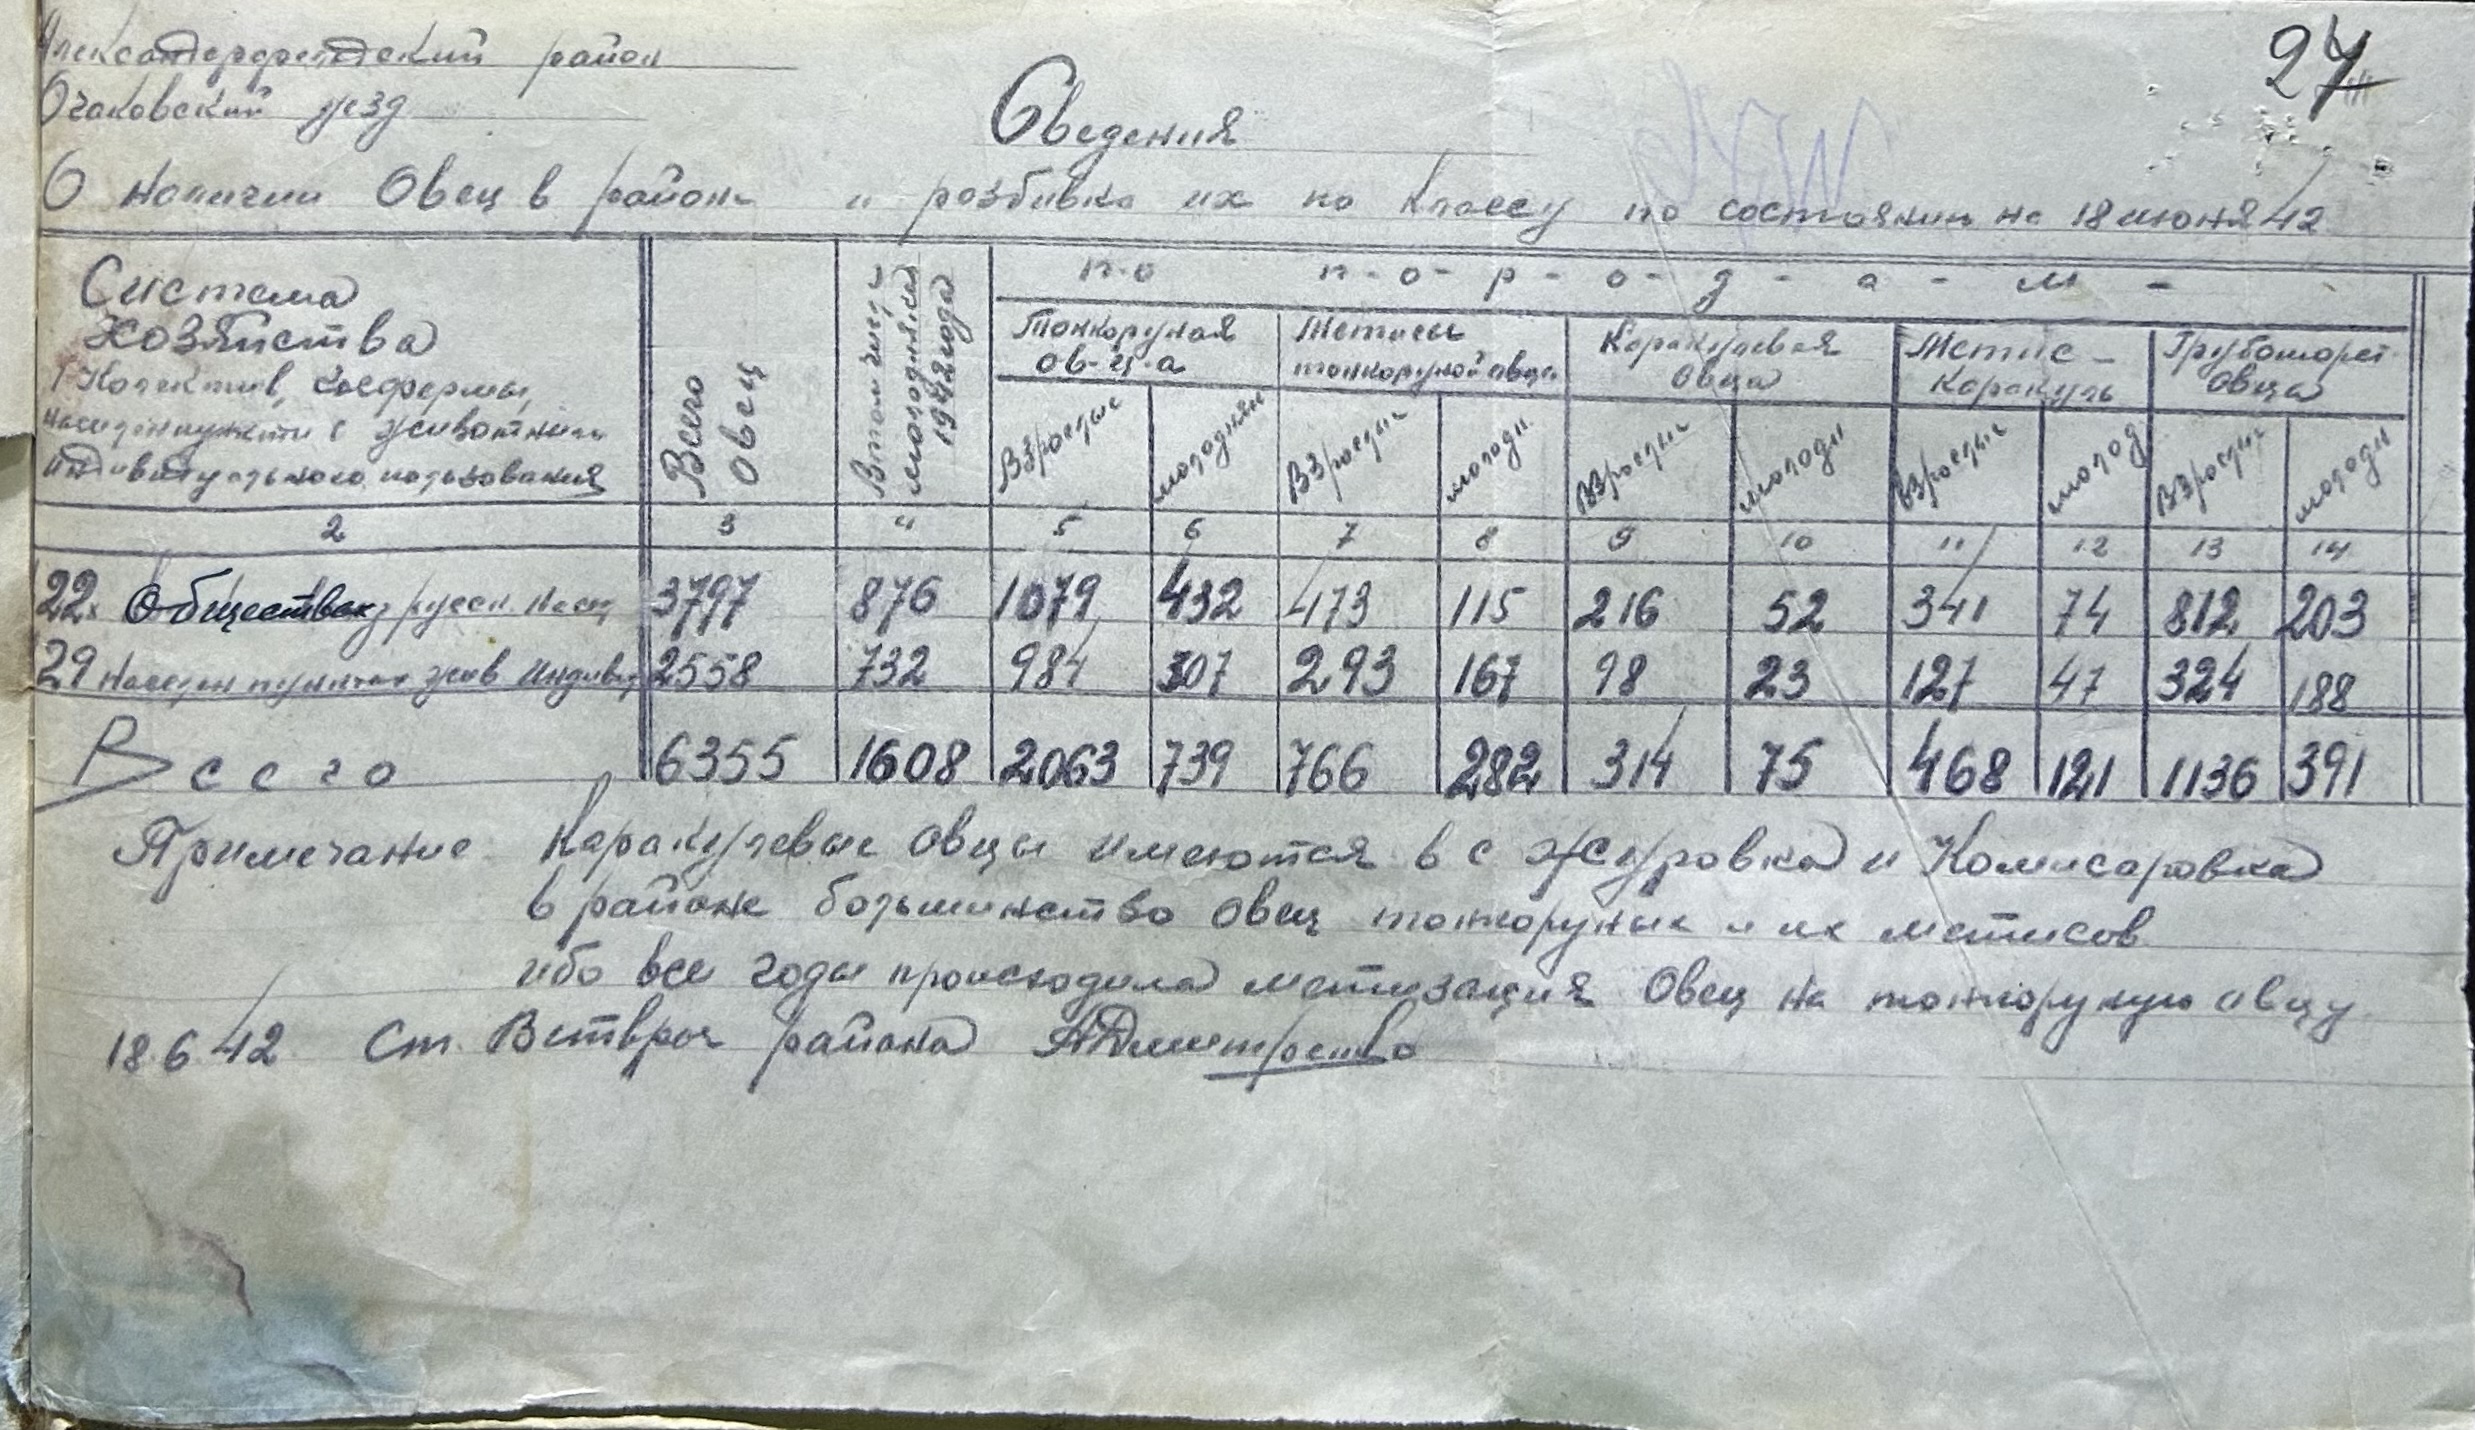 Александерфельдский район
Очаковский уезд
27
Сведения
О наличии Овец в районе и розбивка их по классу по состоянию на 18 июня 42
Система
Хозяйства
Всего
Овец
В том числе
молодняка
1942 года
п-о п-о-р-о-д-а-м-
Тонкоруная
ов-ц-а
Метисы
тонкоруной овцы
Каракулевая
Овца
Метис-
Каракуль
Грубошорст
Овца
(Колектив, сосфермы,
населен пункти с животными
индивитуального пользования
Взрослые молодняк Взрослые молодн. Взрослые молодн Взрослые молод Взрослые молодн
2 3 4 5 6 7 8 9 10 11 12 13 14
22 Обществах русск. Насел 3797 876 1079 432 473 115 216 52 341 74 812 203
29 населен пунктах жив Индивид 2558 732 984 307 293 167 98 23 127 47 324 188
Всего 6355 1608 2063 739 766 282 314 75 468 121 1136 391
Примечание Каракулевые Овцы имеются в с Журовка и Комисаровка
в районе большинство Овец тонкоруных и их метисов
ибо все годы происходила метизация Овец на тонкоруную овцу
18.6.42 Ст. Ветврач района